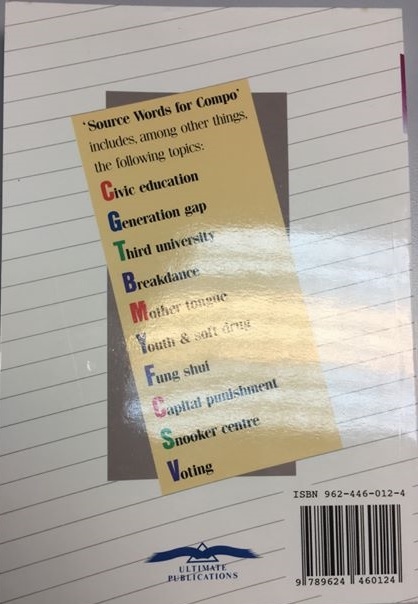 'Source Words for Compo'
includes, among other things,
the following topics:
Civic education
Generation gap
Third university
Breakdance
Mother tongue
Youth & soft drug
Fung shui
Capital punishment
Snooker centre
Voting
ISBN 962-446-012-4
9 789624 460124
ULTIMATE
PUBLICATIONS